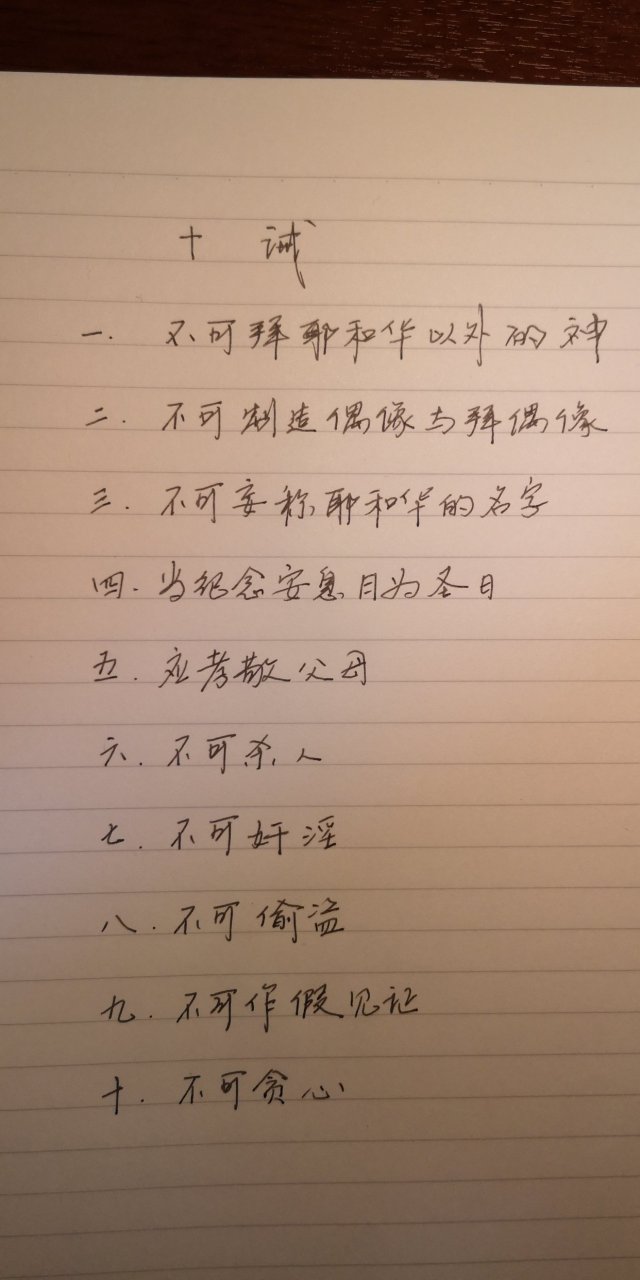 十 诫
一. 不可拜耶和华以外的神
二. 不可制造偶像与拜偶像
三. 不可妄称耶和华的名字
四. 当纪念安息日为圣日
五. 应孝敬父母
六. 不可杀人
七. 不可奸淫
八. 不可偷盗
九. 不可作假见证
十. 不可贪心